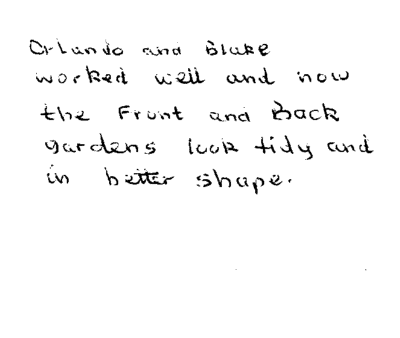 Orlando and Blake
worked well and now
the Front and Back
gardens look tidy and
in better shape.